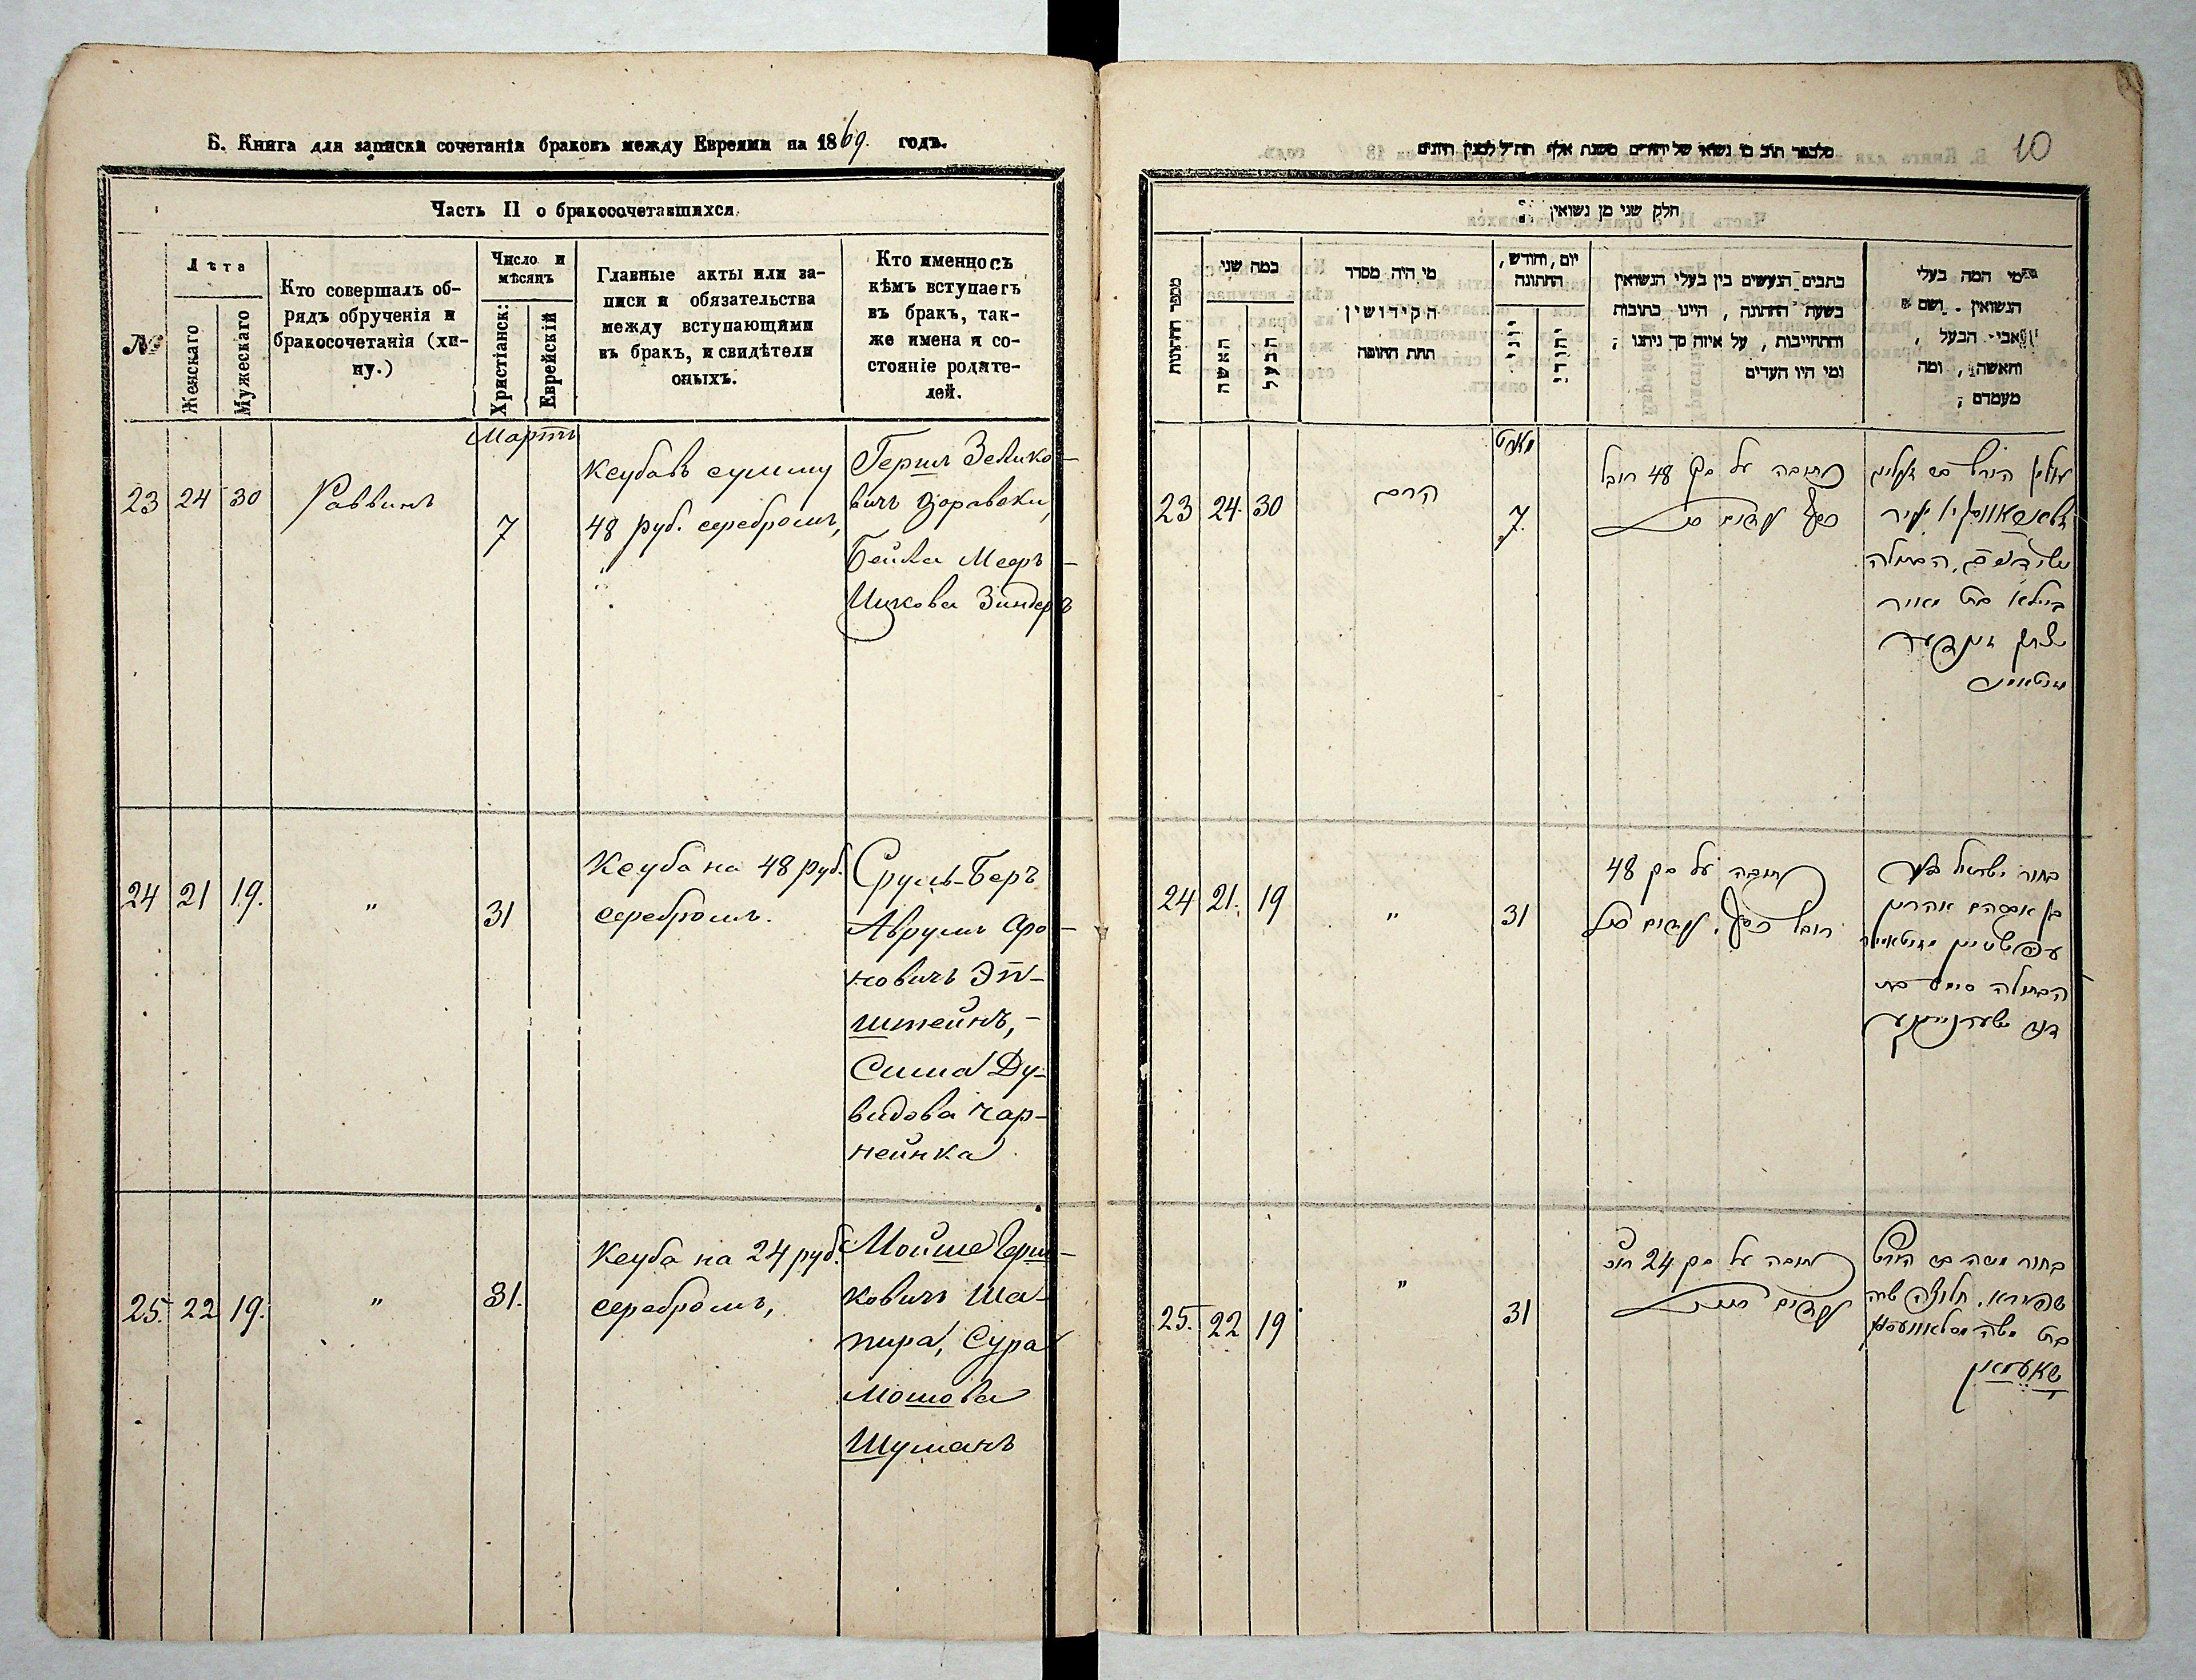 Б. Книга для записки сочетанія браковъ между Евреями на 1869. годъ.
Часть II о бракосочетавшихся.
№
Лѣта
Женскаго
Мужескаго
Кто совершалъ об-
рядъ обрученія и
бракосочетанія (хи-
пу.)
Число и
мѣсяцъ
Христіанск:
Еврейскій
Главные акты или за-
писи и обязательства
между вступающими
въ бракъ, и свидѣтели
оныхъ.
Кто именно съ
кѣмъ вступаетъ
въ бракъ, так-
же имена и со-
стояніе родите-
лей.
Мартъ
23 24 30 Раввинъ 7
Кеуба въ сумму
48 руб. серебромъ,
Гершъ Зелико-
вичъ
Бейла Меер-
Ицкова Зиндеръ
24 21 19. " 31
Кеуба на 48 руб.
серебромъ.
Сруль-Беръ
Аврумъ Аро-
новичъ Эп-
штейнъ,-
Сима Ду-
видова Чар-
нейнка
25. 22 19. " 31.
Кеуба на 24 руб.
серебромъ,
Мойше Герш-
ковичъ Ша-
пира, Сура
Мошова
Шуманъ
10
חלק שני מן נשואין
מספר החתונות
כמה שני
האשה
הבעל
מי היה מסדר
הקידושין
תחת החופה
יום, וחודש,
החתונה
יוני
יהודי
כתבים הנעשים בין בעלי הנשואין
בשעת החתונה, היינו כתובות
והתחייבות, על איזה סך ניתנו;
ומי היו העדים
מי המה בעלי
הנשואין. ושם
אבי הבעל,
והאשה, ומה
מעמדם;
מארט
23 24. 30 הרב 7.
כתובה על סך 48 רובל
כסף
הבתולה
ביילא בת מאיר
24 21. 19 " 31
כתובה על סך 48
רובל כסף.
בחור ישראל בער
בן אברהם אהרון
עפשטיין
הבתולה סימע בת
דוד
25. 22 19 " 31
כתובה על סך 24 רוב
בחור משה בן הירש
שפירא. שרה
בת משה